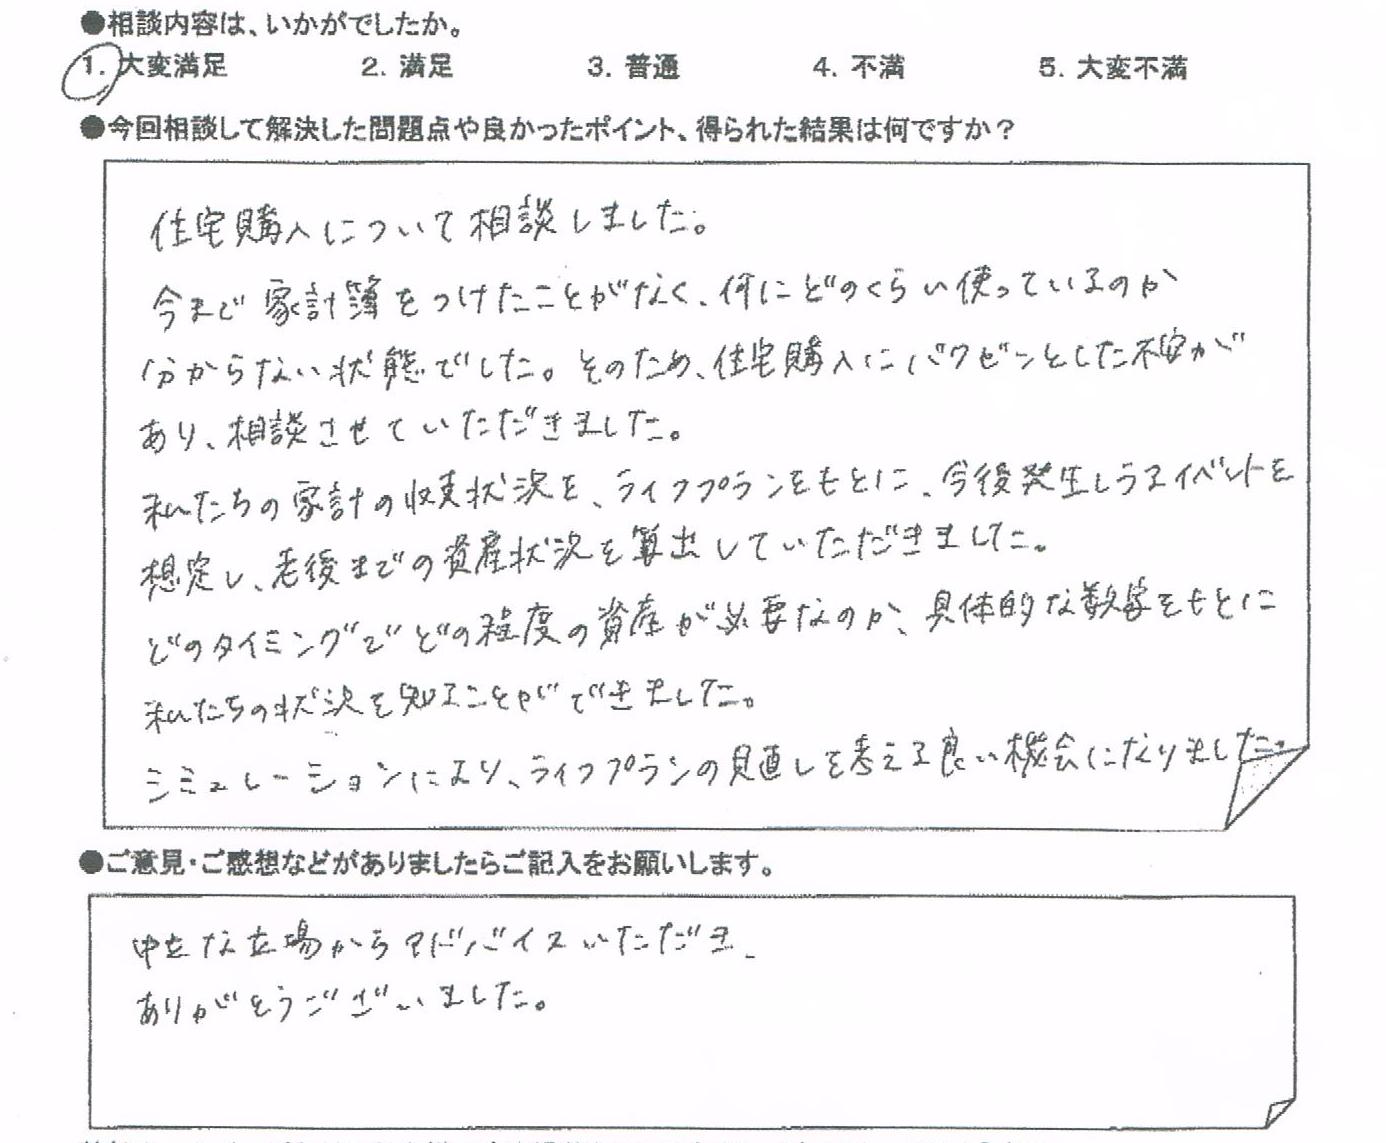 ●相談内容は、いかがでしたか。
1. 大変満足 2. 満足 3. 普通 4. 不満 5. 大変不満
●今回相談して解決した問題点や良かったポイント、得られた結果は何ですか？
住宅購入について相談しました。
今まで家計簿をつけたことがなく、何にどのくらい使っているのか
分からない状態でした。そのため、住宅購入にバクゼンとした不安が
あり、相談させていただきました。
私たちの家計の収支状況を、ライフプランをもとに、今後発生しうるイベントを
想定し、老後までの資産状況を算出していただきました。
どのタイミングでどの程度の資産が必要なのか、具体的な数字をもとに
私たちの状況を知ることができました。
シミュレーションにより、ライフプランの見直しを考える良い機会になりました。
●ご意見・ご感想などがありましたらご記入をお願いします。
中立な立場からアドバイスいただき、
ありがとうございました。